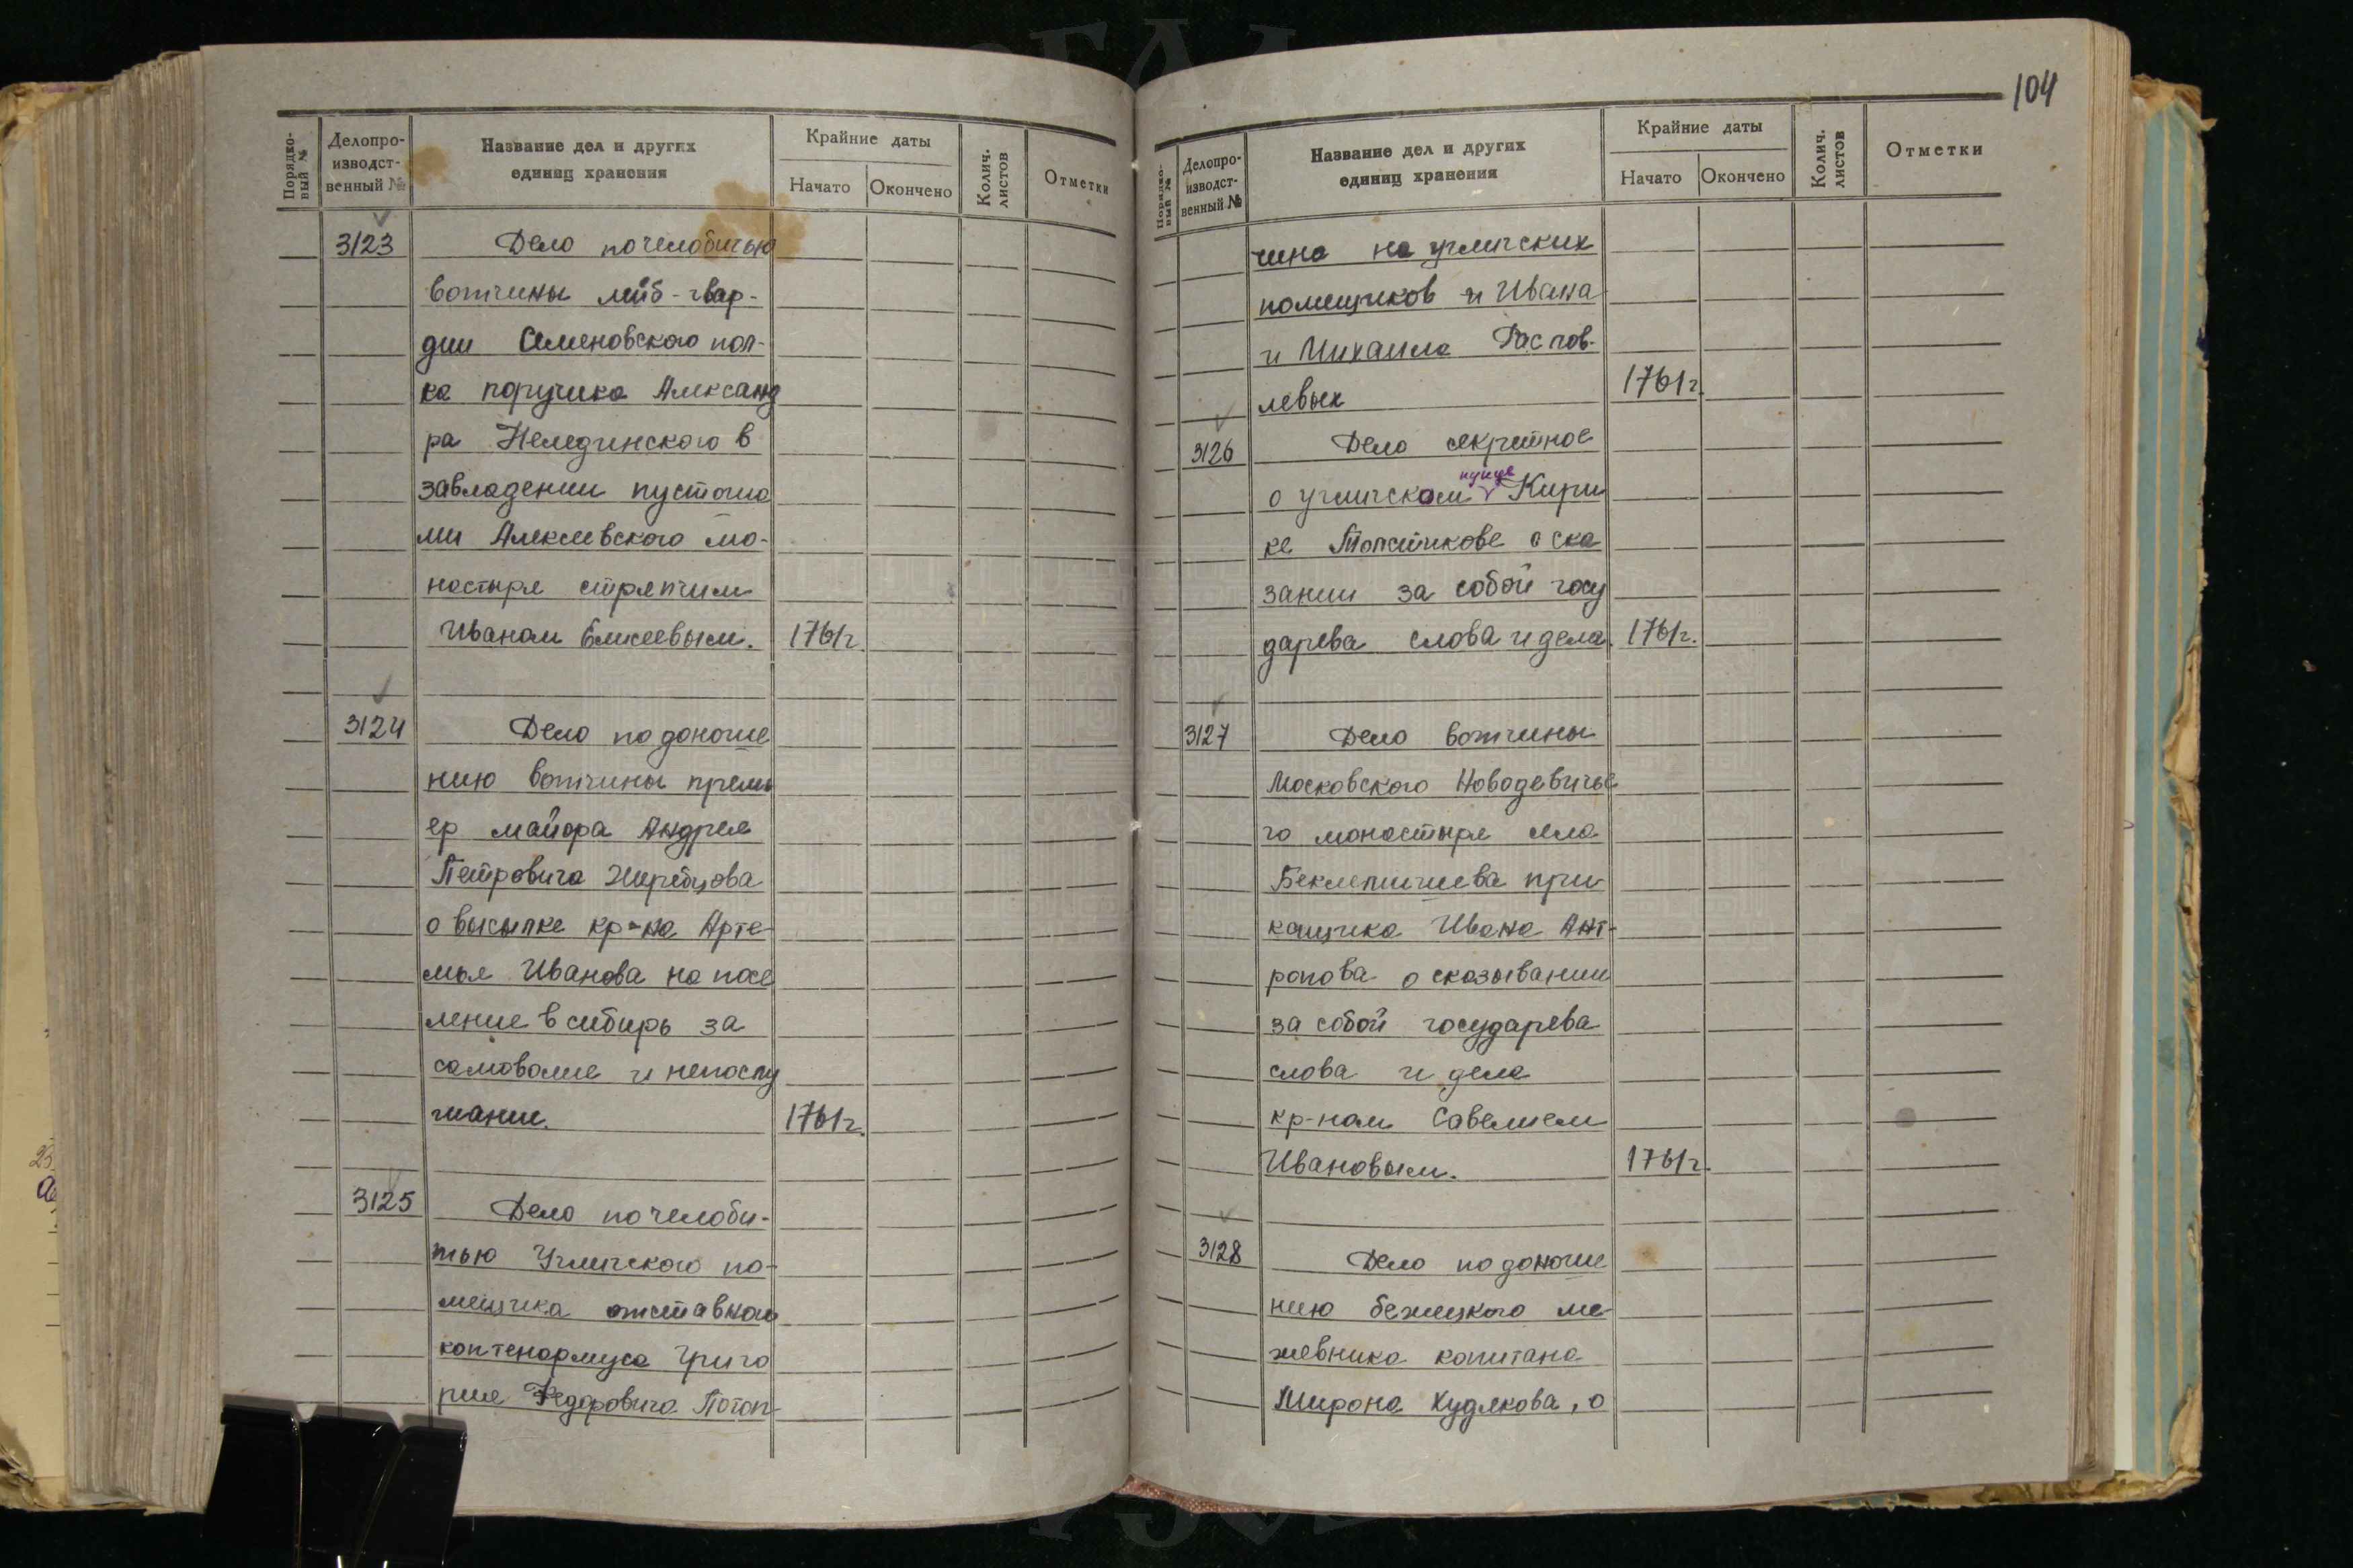 Порядко-
вый №
Делопро-
изводст-
венный №
Название дел и других
единиц хранения
Крайние даты
Начато
Окончено
Колич.
листов
Отметки
3123
Дело по челобитью
вотчины лейб-гвар-
дии Семеновского пол-
ка поручика Александ
ра Нелединского в
завладении пустоша
ми Алексеевского мо-
настыря стряпчим
Иваном Елисеевым. 1761г.
3124
Дело по доноше
нию вотчины премь
ер майора Андрея
Петровича Жеребцова
о высылке кр-на Арте
мья Иванова на посе
ление в сибирь за
самоволие и непослу
шание. 1761г.
3125
Дело по челоби-
тью Угличского по-
мещика отставного
коптенормуса Григо
рия Федоровича Потоп-
104
Порядко-
вый №
Делопро-
изводст-
венный №
Название дел и других
единиц хранения
Крайние даты
Начато
Окончено
Колич.
листов
Отметки
чина на угличских
помещиков и Ивана
и Михаила
левых 1761г.
3126
Дело секретное
купце
о угличском Кири
ке о ска
зании за собой госу
дарева слова и дела. 1761г.
3127
Дело вотчины
Московского Новодевичье
го монастыря села
Беклемишева при
кащика Ивана Ант-
ропова о сказывании
за собой государева
слова и дела
кр-ном Савелием
Ивановым. 1761г.
3128
Дело по доноше
нию бежецкого ме-
жевника капитана
Мирона Худякова, о